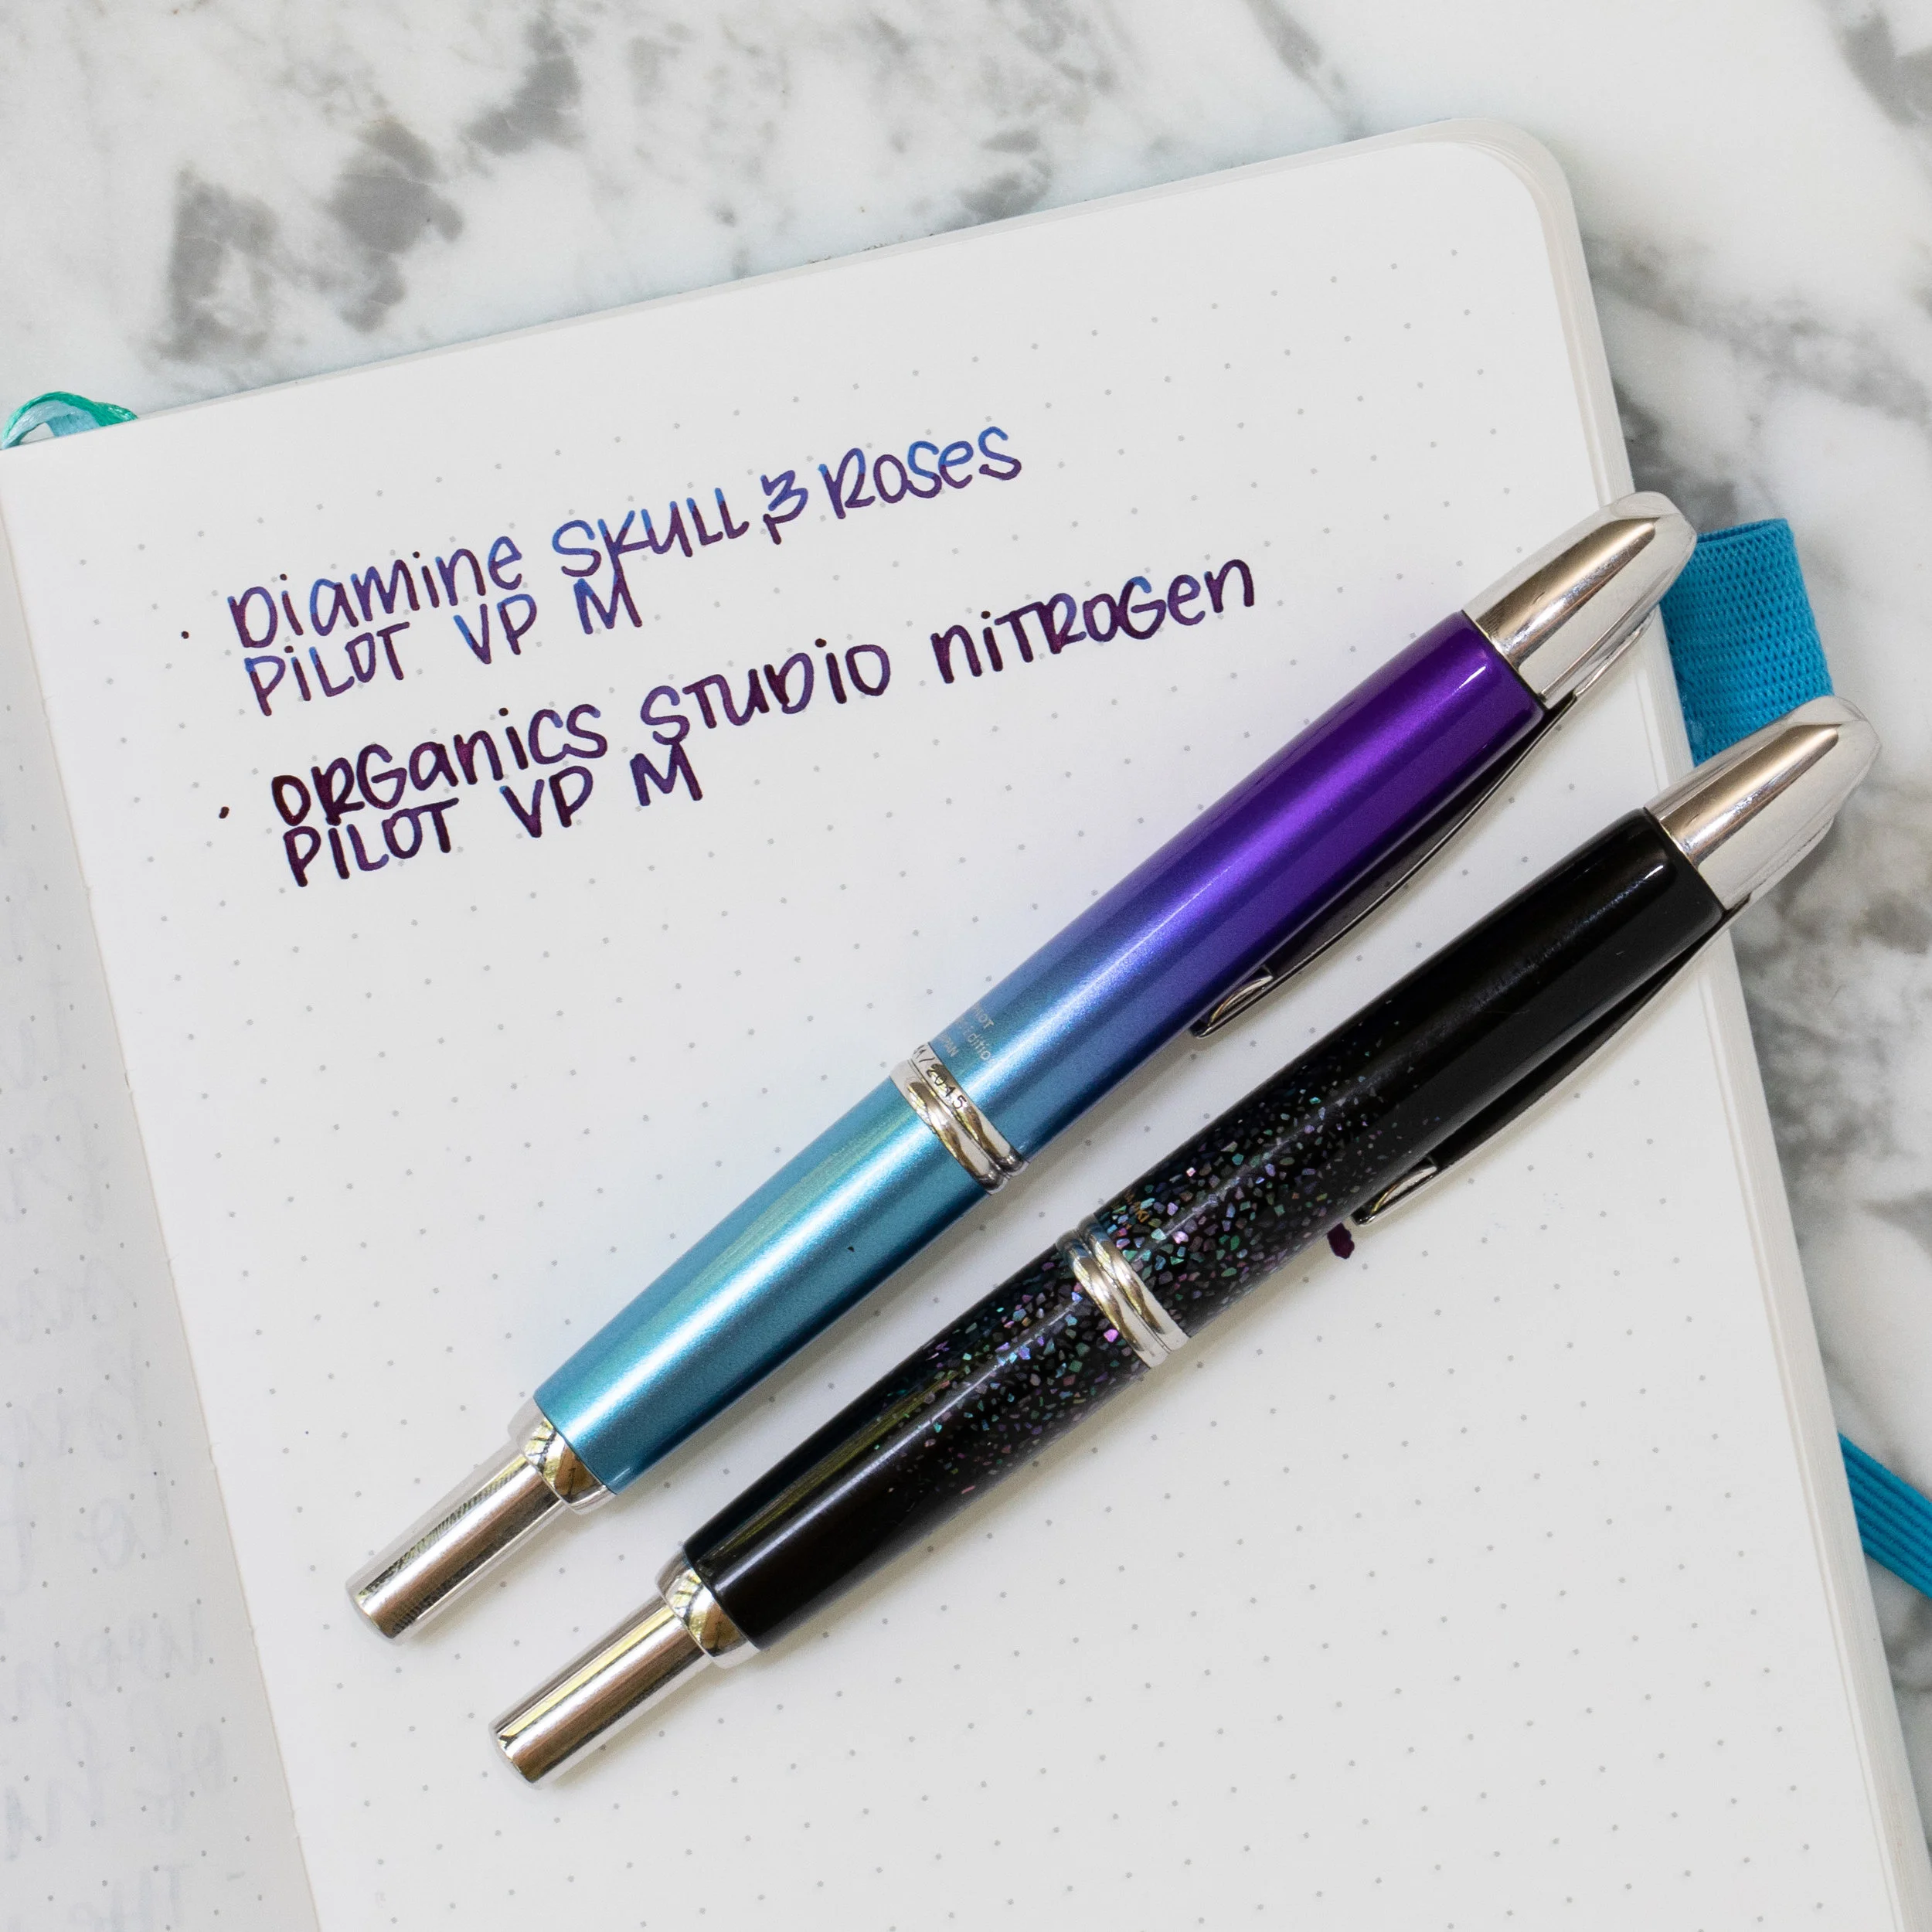 • Diamine SKULL & Roses
PILOT VP M
• ORGanics STUDIO niTROGen
PILOT VP M
Editio
/2015